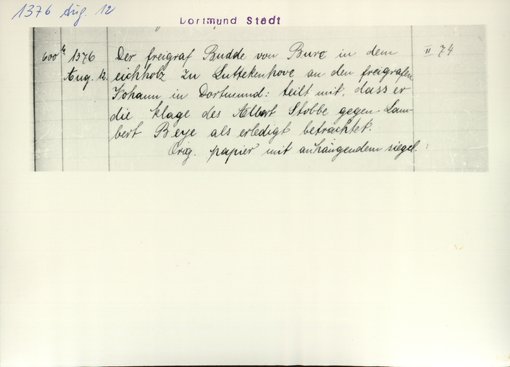 1376 Aug 12
Dortmund Stadt
600 1376 Der freigraf Budde von Bure in dem II 74
Aug. 12. eichholz zu Luttekenhove an den freigrafen
Johann in Dortmund: teilt mit, dass er
die klage des Albert Stobbe gegen Lam-
bert Beye als erledigt betrachtet.
Orig. papier mit anhängendem siegel.